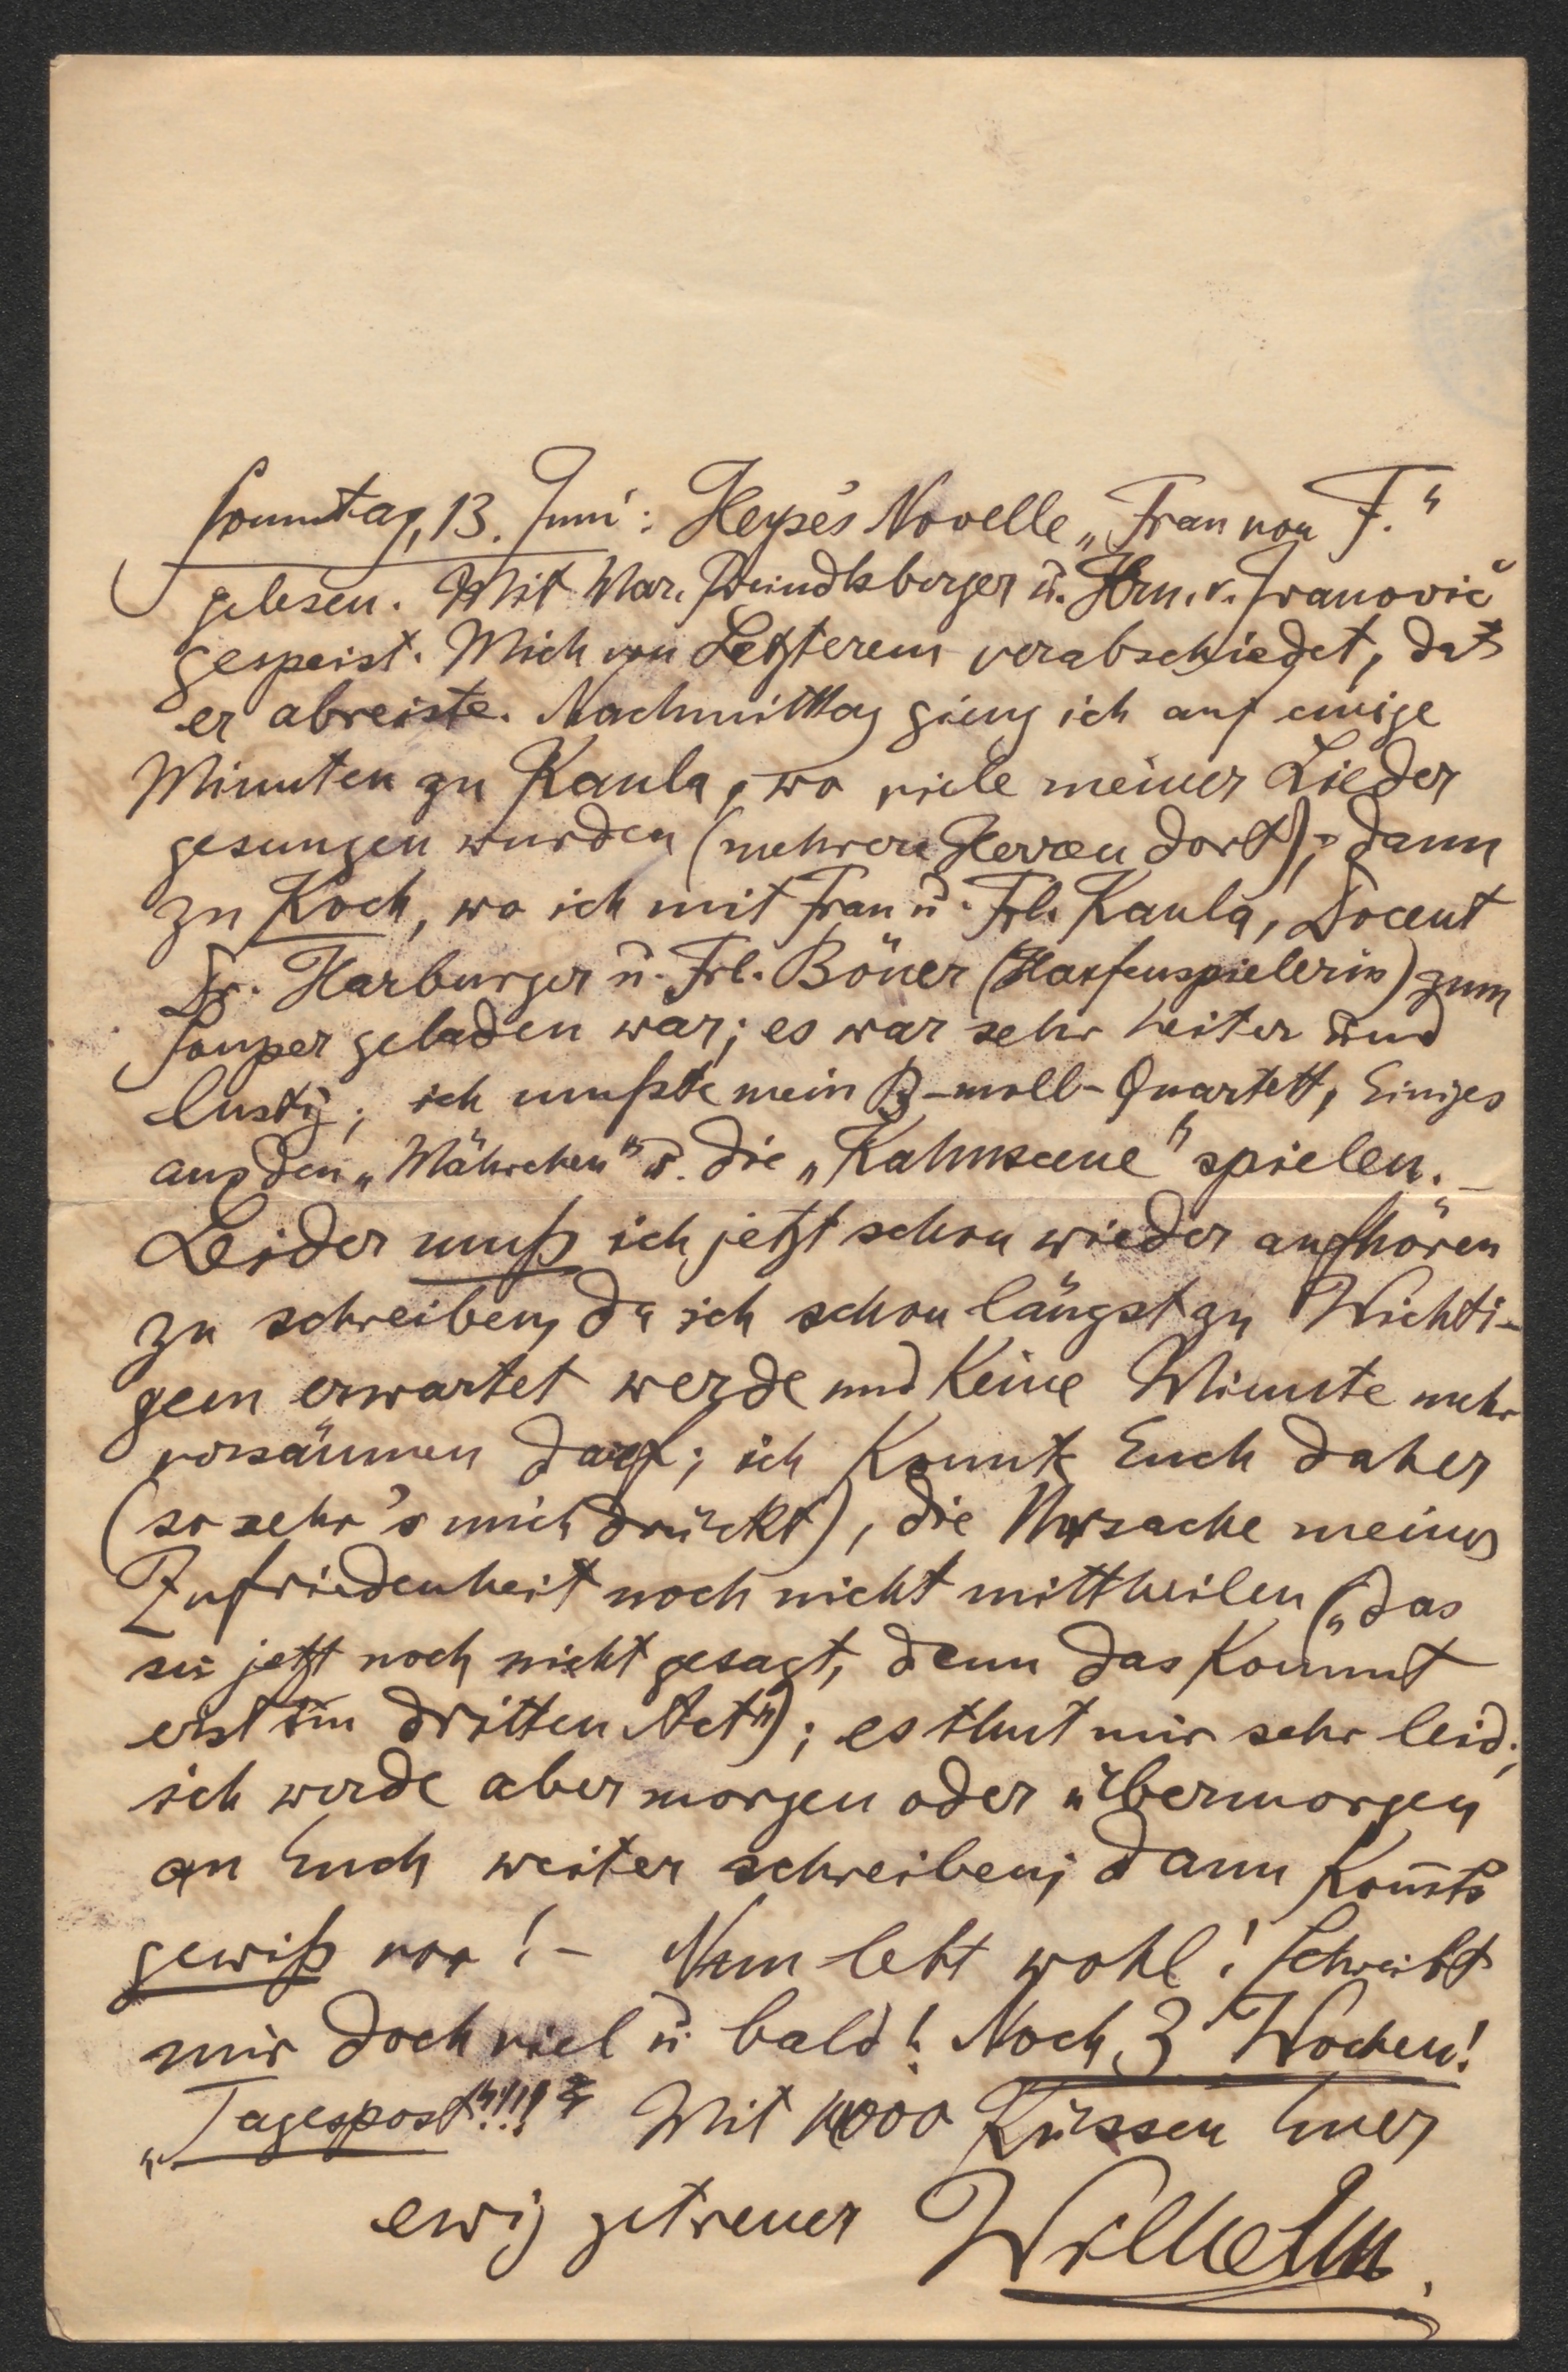 Sonntag, 13. Juni: Heyse's Novelle „Frau von F.“
gelesen. Mit Mar. Preindlsberger u. Hrn. v. Ivanovič
gespeist. Mich von Letzterem verabschiedet, da
er abreiste. Nachmittag gieng ich auf einige
Minuten zu Kaula, wo viele meiner Lieder
gesungen wurden (mehrere Herren dort); dann
zu Koch, wo ich mit Frau u. Frl. Kaula, Docent
Dr. Harburger u. Frl. Böner (Harfenspielerin) zum
Souper geladen war; es war sehr heiter und
lustig; ich mußte mein B-moll-Quartett, Einiges
aus den „Mährchen“ u. die „Kahnscene“ spielen. –
Leider muß ich jetzt schon wieder aufhören
zu schreiben, da ich schon längst zu Wichti-
gem erwartet werde und keine Minute mehr
versäumen darf; ich konnte Euch daher
(so sehr's mich drückt), die Ursache meiner
Zufriedenheit noch nicht mittheilen („das
sei jetzt noch nicht gesagt, denn das kommt
erst im dritten Act“); es thut mir sehr leid;
ich werde aber morgen oder übermorgen
an Euch weiter schreiben; dann kom̄ts
gewiß vor! – Nun lebt wohl! Schreibt
mir doch viel u. bald! Noch 3 Wochen!
„Tagespost“!!! Mit 1000 Küssen Euer
ewig getreuer Wilhelm.